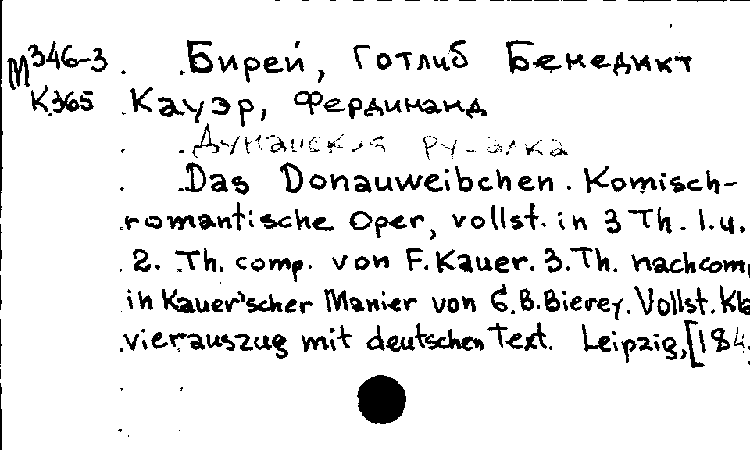 М346-3 Бирей, Готлиб Бенедикт
К365 Кауэр, Фердинанд
Дунайская русалка
Das Donauweibchen. Komisch-
romantische Oper, vollst. in 3 Th. 1. u.
2. Th. comp. von F. Kauer. 3. Th. nachcomp
in Kauer'scher Manier von G. B. Bierey. Vollst. Kla
vierauszug mit deutschen Text. Leipzig, [184